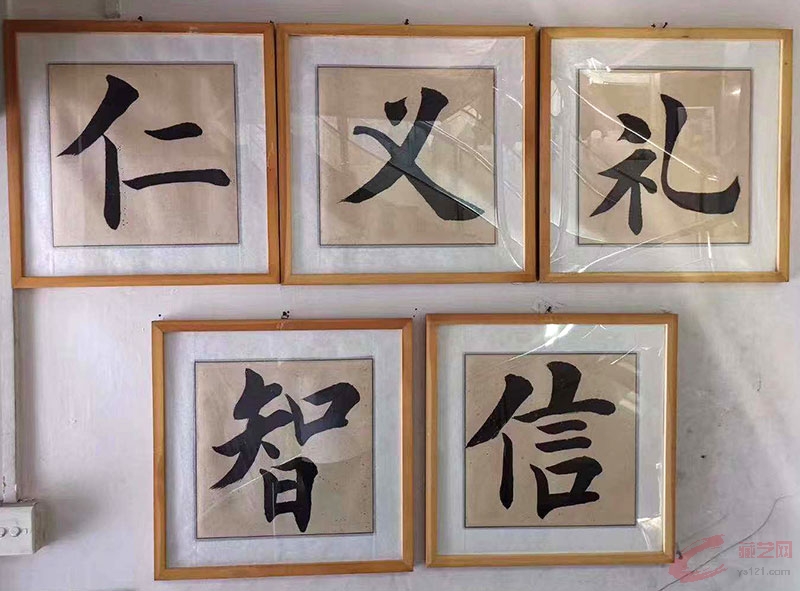 仁义礼
智信
疯艺网
ys121.com